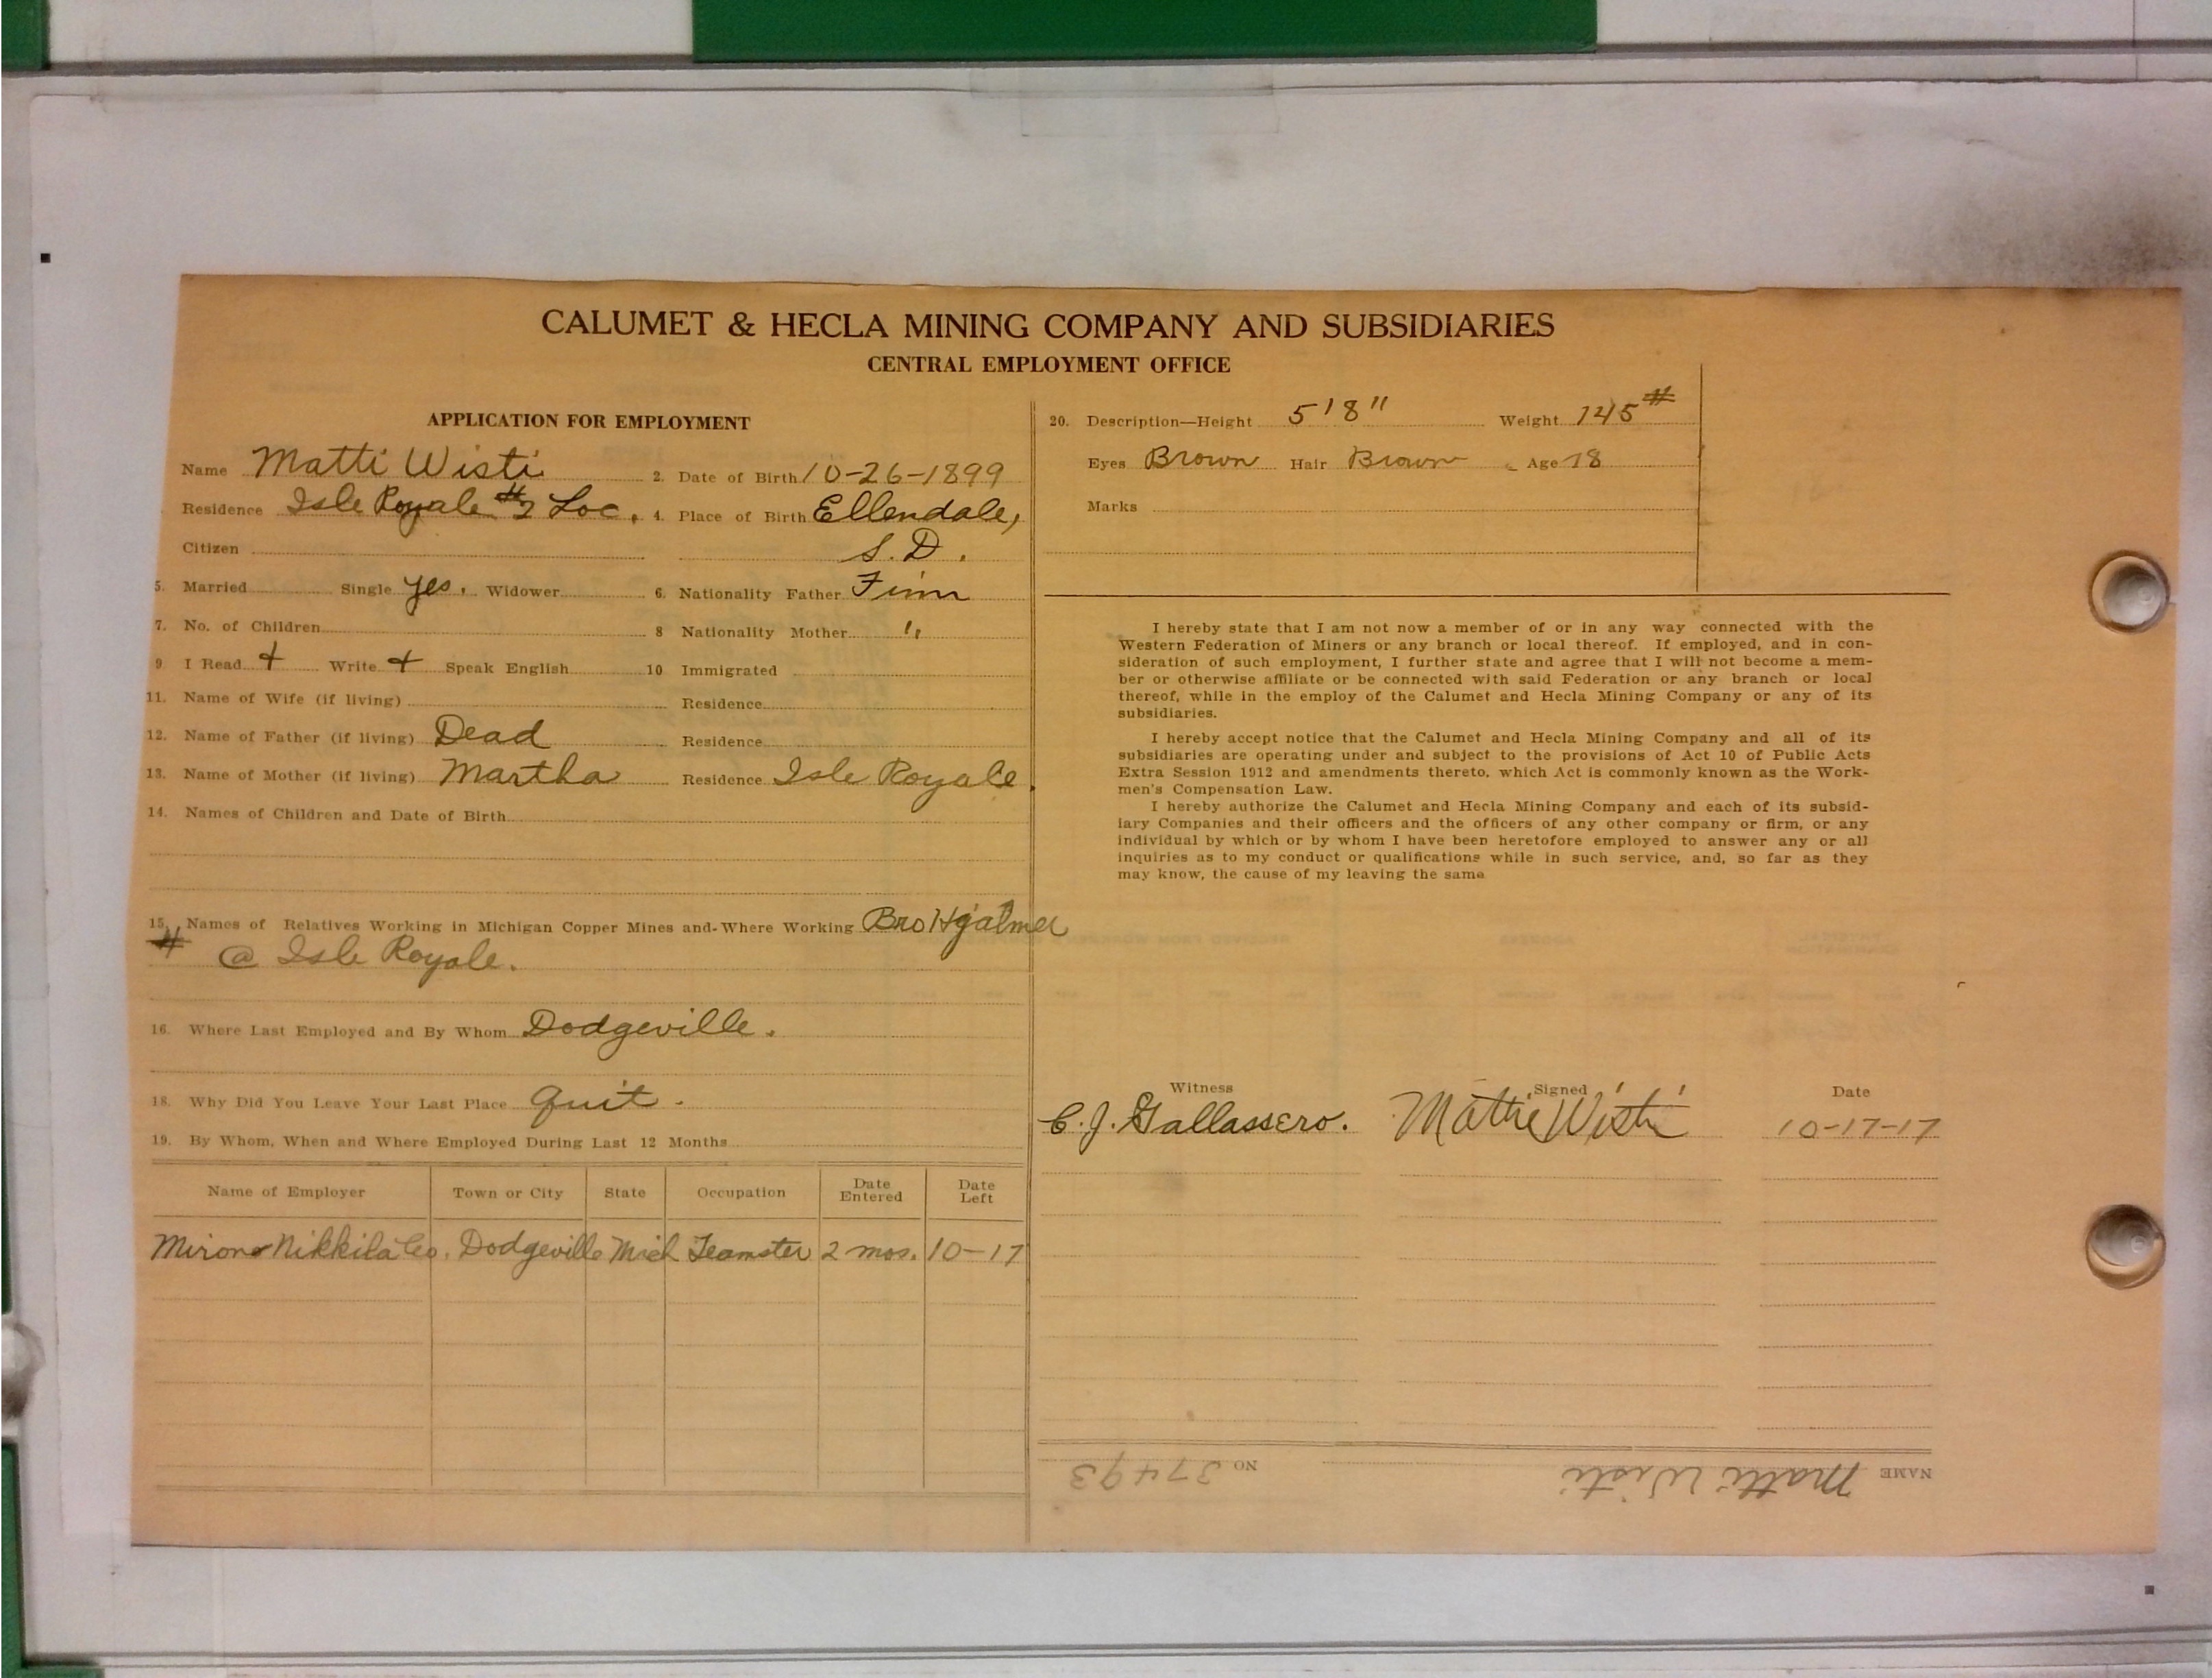 CALUMET & HECLA MINING COMPANY AND SUBSIDIARIES
CENTRAL EMPLOYMENT OFFICE
APPLICATION FOR EMPLOYMENT
Name Matti Wisti 2. Date of Birth 10-26-1899
Residence Isle Royale #2 Loc. 4. Place of Birth Ellendale,
Citizen S.D.
5. Married Single yes. Widower 6. Nationality Father Finn
7. No. of Children 8 Nationality Mother "
9 I Read + Write + Speak English 10 Immigrated
11. Name of Wife (if living) Residence
12. Name of Father (if living) Dead Residence
13. Name of Mother (if living) Martha Residence Isle Royale.
14. Names of Children and Date of Birth
15. Names of Relatives Working in Michigan Copper Mines and Where Working Bro Hjalmer
# @ Isle Royale.
16. Where Last Employed and By Whom Dodgeville.
18. Why Did You Leave Your Last Place quit.
19. By Whom, When and Where Employed During Last 12 Months
Name of Employer Town or City State Occupation Date Entered Date Left
Nikkila Co. Dodgeville Mich Teamster 2 mos. 10-17
20. Description—Height 5'8" Weight 145#
Eyes Brown Hair Brown Age 18
Marks
I hereby state that I am not now a member of or in any way connected with the
Western Federation of Miners or any branch or local thereof. If employed, and in con-
sideration of such employment, I further state and agree that I will not become a mem-
ber or otherwise affiliate or be connected with said Federation or any branch or local
thereof, while in the employ of the Calumet and Hecla Mining Company or any of its
subsidiaries.
I hereby accept notice that the Calumet and Hecla Mining Company and all of its
subsidiaries are operating under and subject to the provisions of Act 10 of Public Acts
Extra Session 1912 and amendments thereto, which Act is commonly known as the Work-
men's Compensation Law.
I hereby authorize the Calumet and Hecla Mining Company and each of its subsid-
iary Companies and their officers and the officers of any other company or firm, or any
individual by which or by whom I have been heretofore employed to answer any or all
inquiries as to my conduct or qualifications while in such service, and, so far as they
may know, the cause of my leaving the same
Witness Signed Date
C. J. Gallassero. Mattie Wisti 10-17-17
NAME Matti Wisti NO 37493